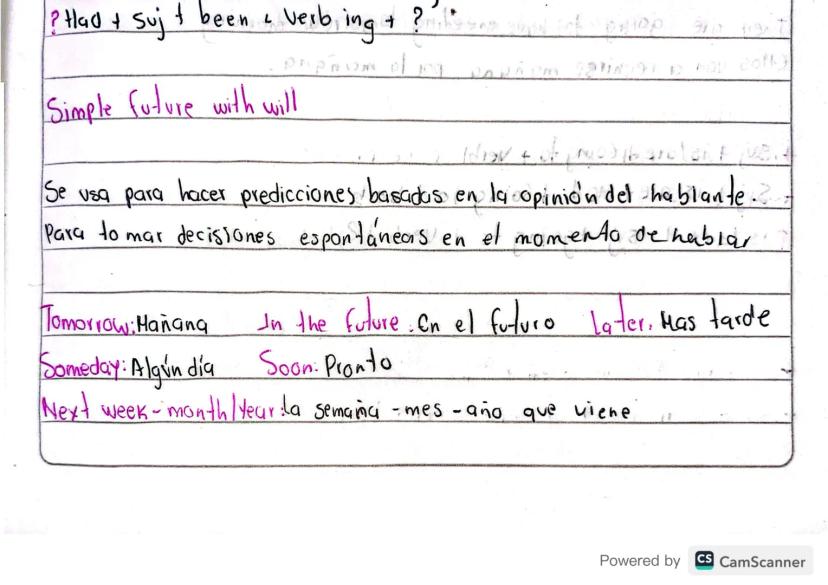 ? Had + Suj + been + Verb ing + ?
Simple future with will
Se usa para hacer predicciones basadas en la opinión del hablante.
Para tomar decisiones espontáneas en el momento de hablar
Tomorrow: Mañana In the future: En el futuro Later: Mas tarde
Someday: Algún día Soon: Pronto
Next week - month/year: la semana - mes - año que viene
Powered by CS CamScanner